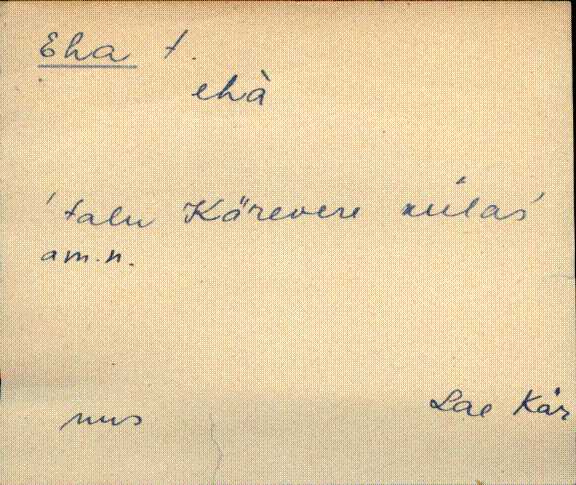 Eha t.
ehà
'talu Kärevere külas'
am.n.
Lae Kär